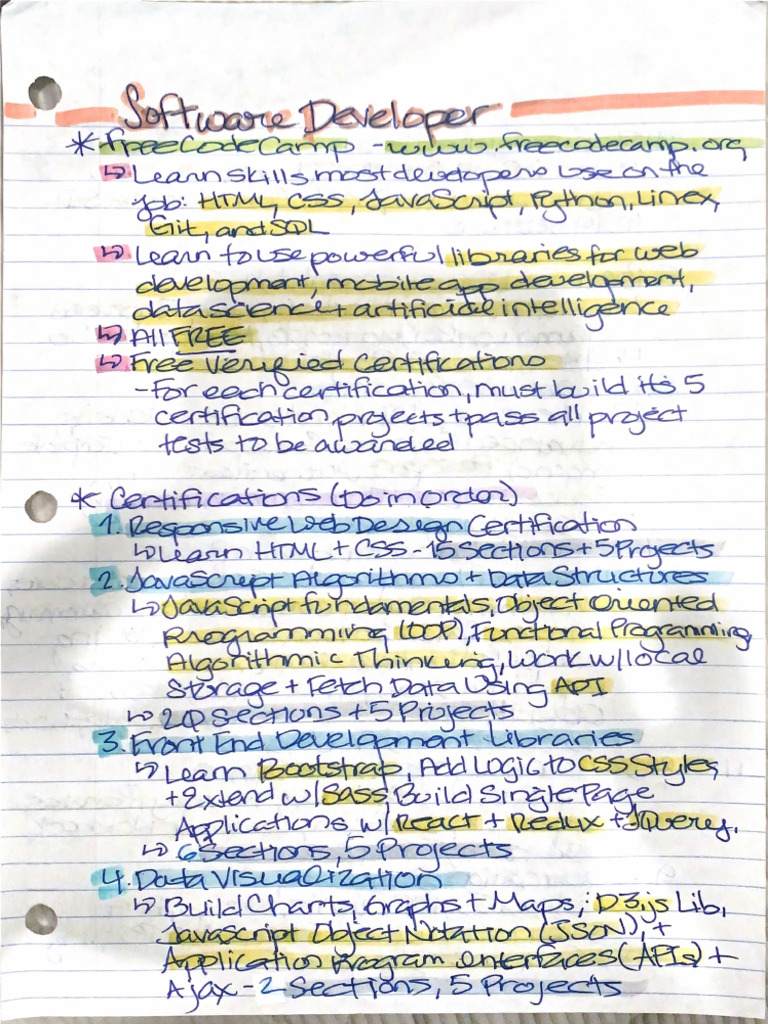 Software Developer
* freeCodeCamp - www.freecodecamp.org
↳ Learn skills most developers use on the
job: HTML, CSS, JavaScript, Python, Linex,
Git, and SQL
↳ Learn to use powerful libraries for web
development, mobile app development,
data science + artificial intelligence
↳ All FREE
↳ Free Verified Certifications
- For each certification, must build its 5
certification projects + pass all project
tests to be awarded
* Certifications (Do in Order)
1. Responsive Web Design Certification
↳ Learn HTML + CSS - 15 Sections + 5 Projects
2. JavaScript Algorithms + Data Structures
↳ JavaScript fundamentals, Object Oriented
Programming (OOP), Functional Programming,
Algorithmic Thinking, Work w/ local
Storage + Fetch Data Using API
↳ 20 Sections + 5 Projects
3. Front End Development Libraries
↳ Learn Bootstrap, Add Logic to CSS Styles
+ Extend w/ Sass, Build Single Page
Applications w/ React + Redux + JQuery.
↳ 6 Sections, 5 Projects
4. Data Visualization
↳ Build Charts, Graphs + Maps, D3.js Lib,
JavaScript Object Notation (JSON), +
Application Program Interfaces (APIs) +
Ajax - 2 Sections, 5 Projects